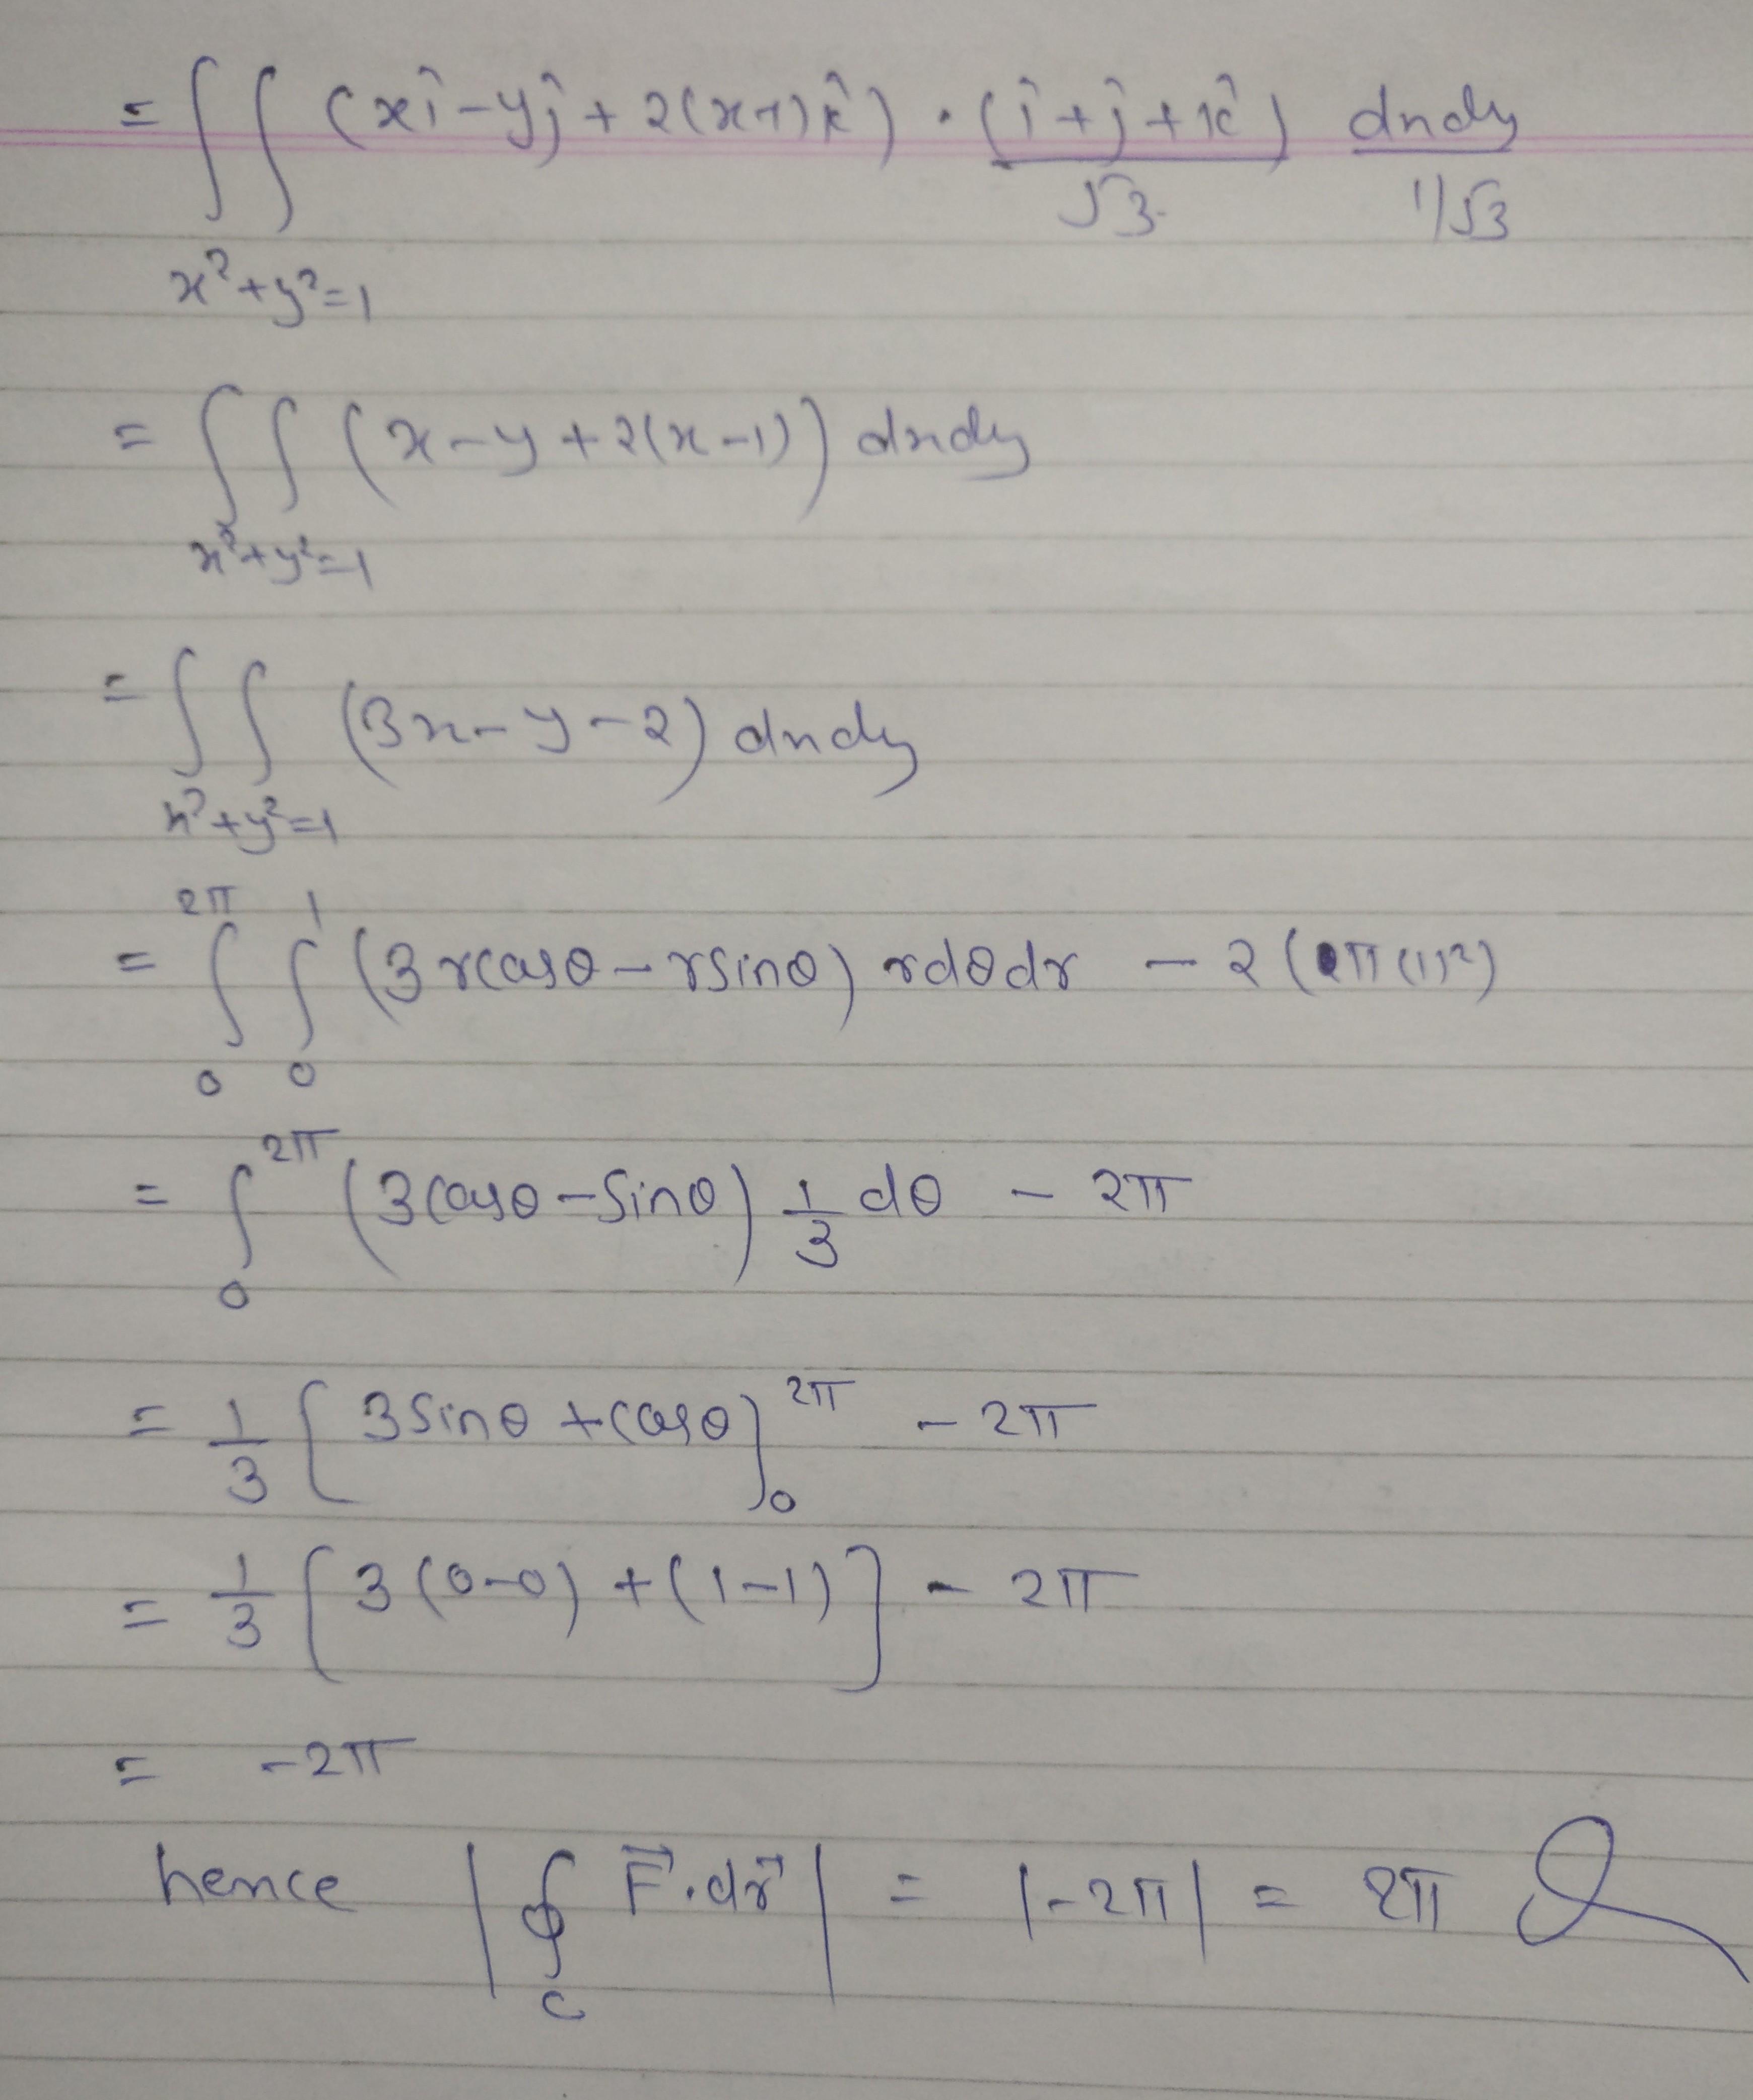 = ∫∫ (xî - yĵ + 2(x-1)k̂) · (î + ĵ + k̂)/√3 dxdy/(1/√3)
x²+y²=1
= ∫∫ (x - y + 2(x-1)) dxdy
x²+y²=1
= ∫∫ (3x - y - 2) dxdy
x²+y²=1
= ∫₀^2π ∫₀^1 (3rcosθ - rsinθ) rdθdr - 2(π(1)²)
= ∫₀^2π (3cosθ - sinθ) 1/3 dθ - 2π
= 1/3 [3sinθ + cosθ]₀^2π - 2π
= 1/3 [3(0-0) + (1-1)] - 2π
= -2π
hence |∮_C F⃗·dr⃗| = |-2π| = 2π